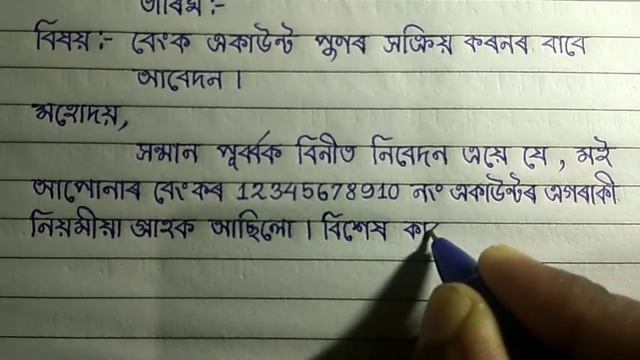 তাৰিখ :-
বিষয় :- বেংক একাউন্ট পুণৰ সক্ৰিয় কৰনৰ বাবে
আবেদন ।
মহোদয়,
সন্মান পূৰ্ব্বক বিনীত নিবেদন এয়ে যে , মই
আপোনাৰ বেংকৰ 12345678910 নং একাউন্টৰ এগৰাকী
নিয়মীয়া গ্ৰাহক আছিলো । বিশেষ কা